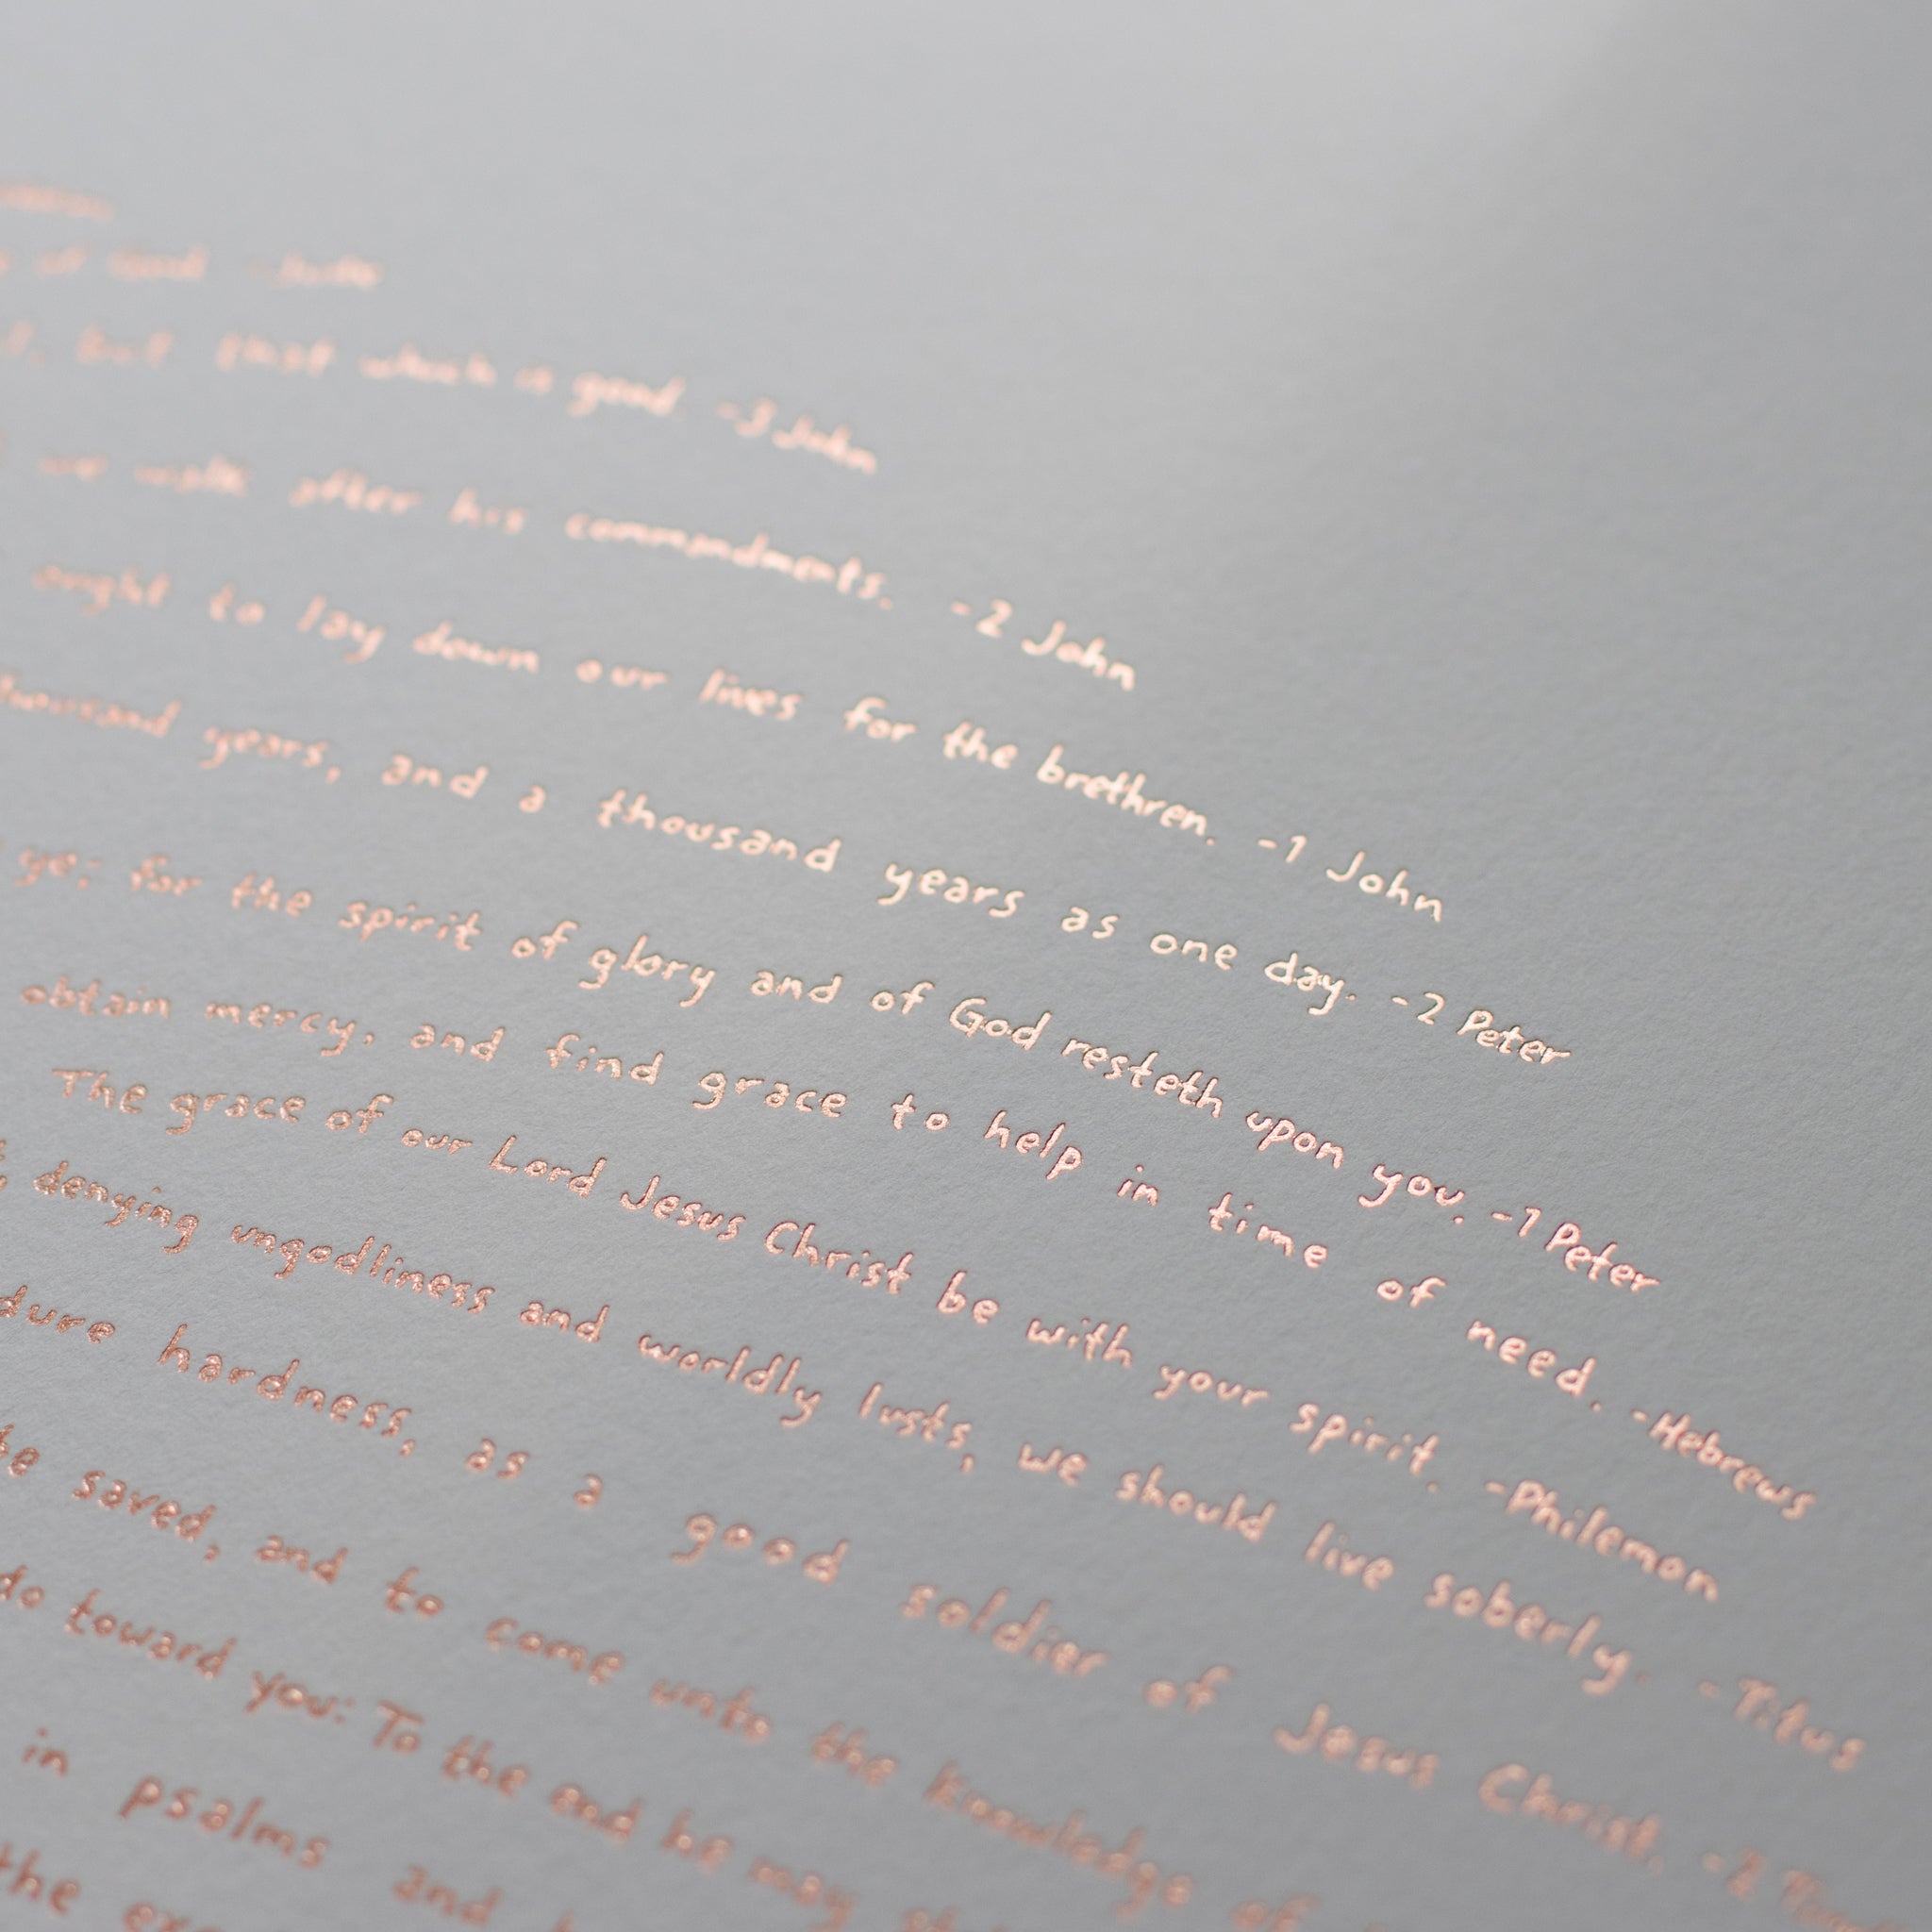 of God -Jude
but that which is good. -3 John
we walk after his commandments. -2 John
ought to lay down our lives for the brethren. -1 John
thousand years, and a thousand years as one day. -2 Peter
ye; for the spirit of glory and of God resteth upon you. -1 Peter
obtain mercy, and find grace to help in time of need. -Hebrews
The grace of our Lord Jesus Christ be with your spirit. -Philemon
denying ungodliness and worldly lusts, we should live soberly. -Titus
dure hardness, as a good soldier of Jesus Christ. -2
be saved, and to come unto the knowledge of
do toward you: To the end he may
in psalms and
the